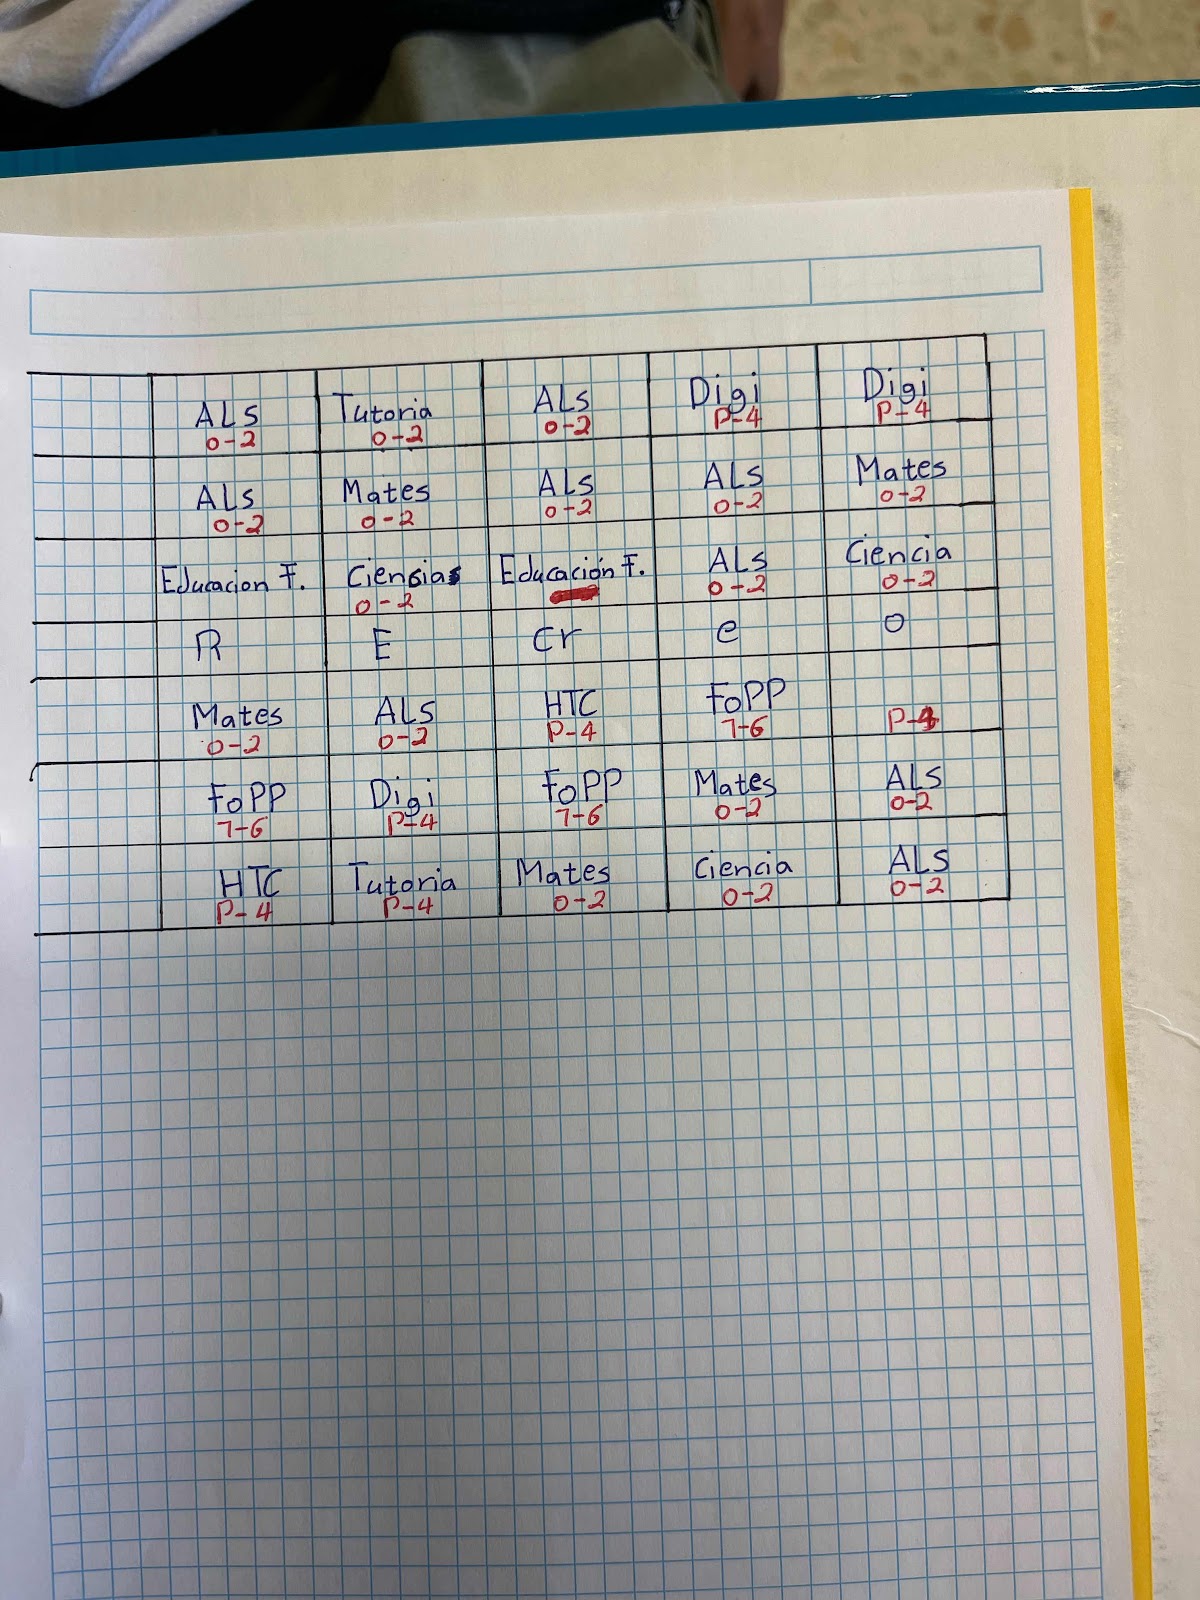 ALS Tutoria ALS Digi Digi
0-2 0-2 0-2 P-4 P-4
ALS Mates ALS ALS Mates
0-2 0-2 0-2 0-2 0-2
Educacion F. Ciencias Educación F. ALS Ciencia
0-2 0-2 0-2
R E Cr e o
Mates ALS HTC FOPP
0-2 0-2 P-4 7-6 P-4
FOPP Digi FOPP Mates ALS
7-6 P-4 7-6 0-2 0-2
HTC Tutoria Mates Ciencia ALS
P-4 P-4 0-2 0-2 0-2